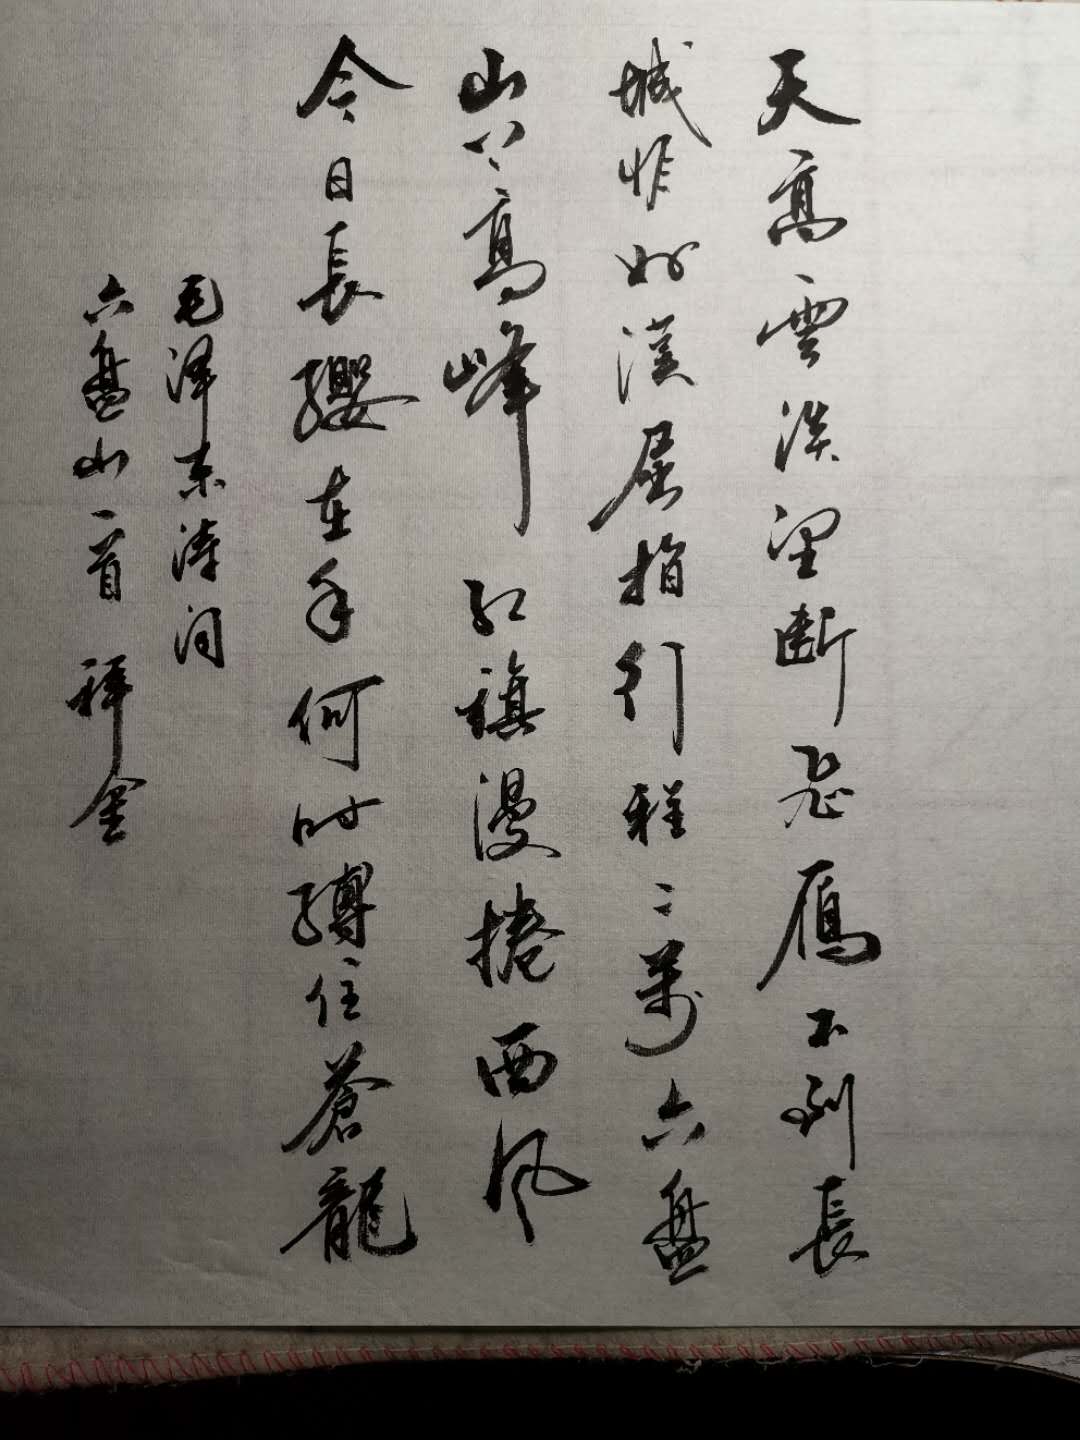 天高雲淡望斷飛雁不到長
城好漢屈指行程二萬六盤
山上高峰紅旗漫捲西風
今日長纓在手何時縛住蒼龍
毛泽东詩词
六盤山一首 祥金